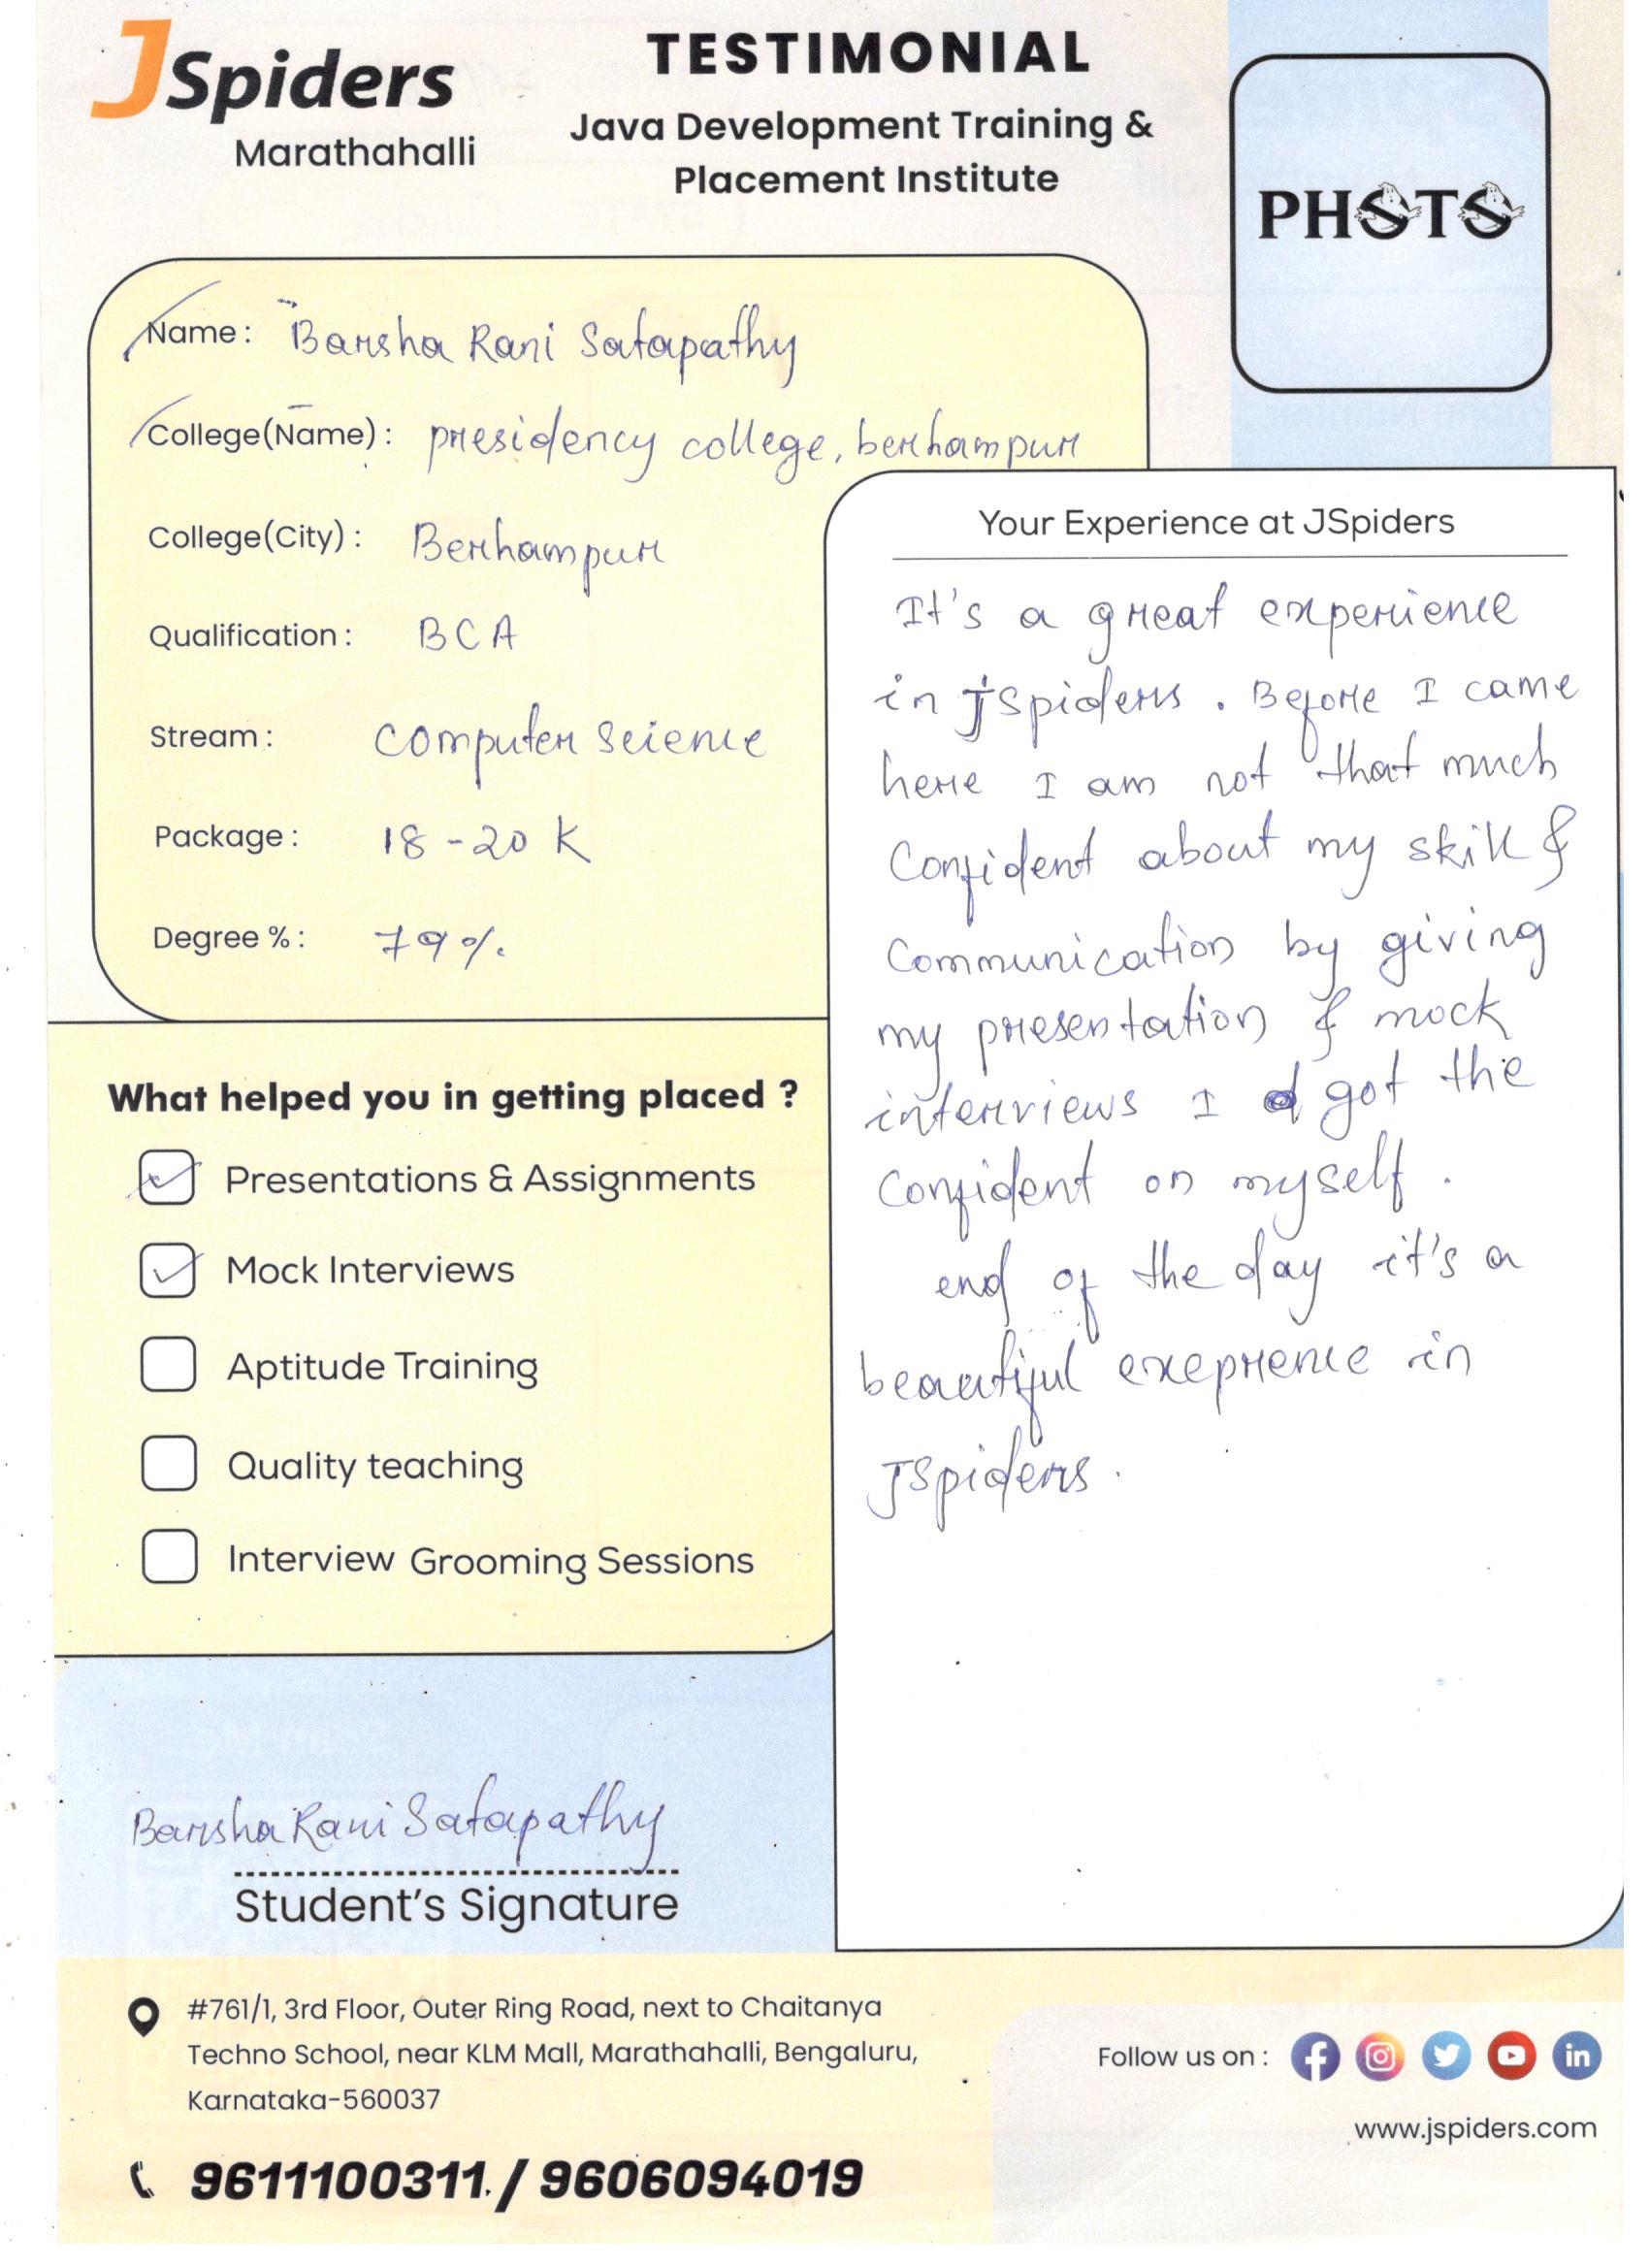 JSpiders
Marathahalli
TESTIMONIAL
Java Development Training &
Placement Institute
PHOTO
Name : Barsha Rani Satapathy
College(Name) : presidency college, berhampur
College(City) : Berhampur
Qualification : BCA
Stream : computer science
Package : 18-20 K
Degree % : 79%.
What helped you in getting placed ?
Presentations & Assignments
Mock Interviews
Aptitude Training
Quality teaching
Interview Grooming Sessions
Your Experience at JSpiders
It's a great experience
in jspiders. Before I came
here I am not that much
Confident about my skill &
Communication by giving
my presentation & mock
interviews I got the
Confident on myself.
end of the day it's a
beautiful exeprence in
JSpiders.
Barsha Rani Satapathy
Student's Signature
#761/1, 3rd Floor, Outer Ring Road, next to Chaitanya
Techno School, near KLM Mall, Marathahalli, Bengaluru,
Karnataka-560037
9611100311 / 9606094019
Follow us on :
www.jspiders.com